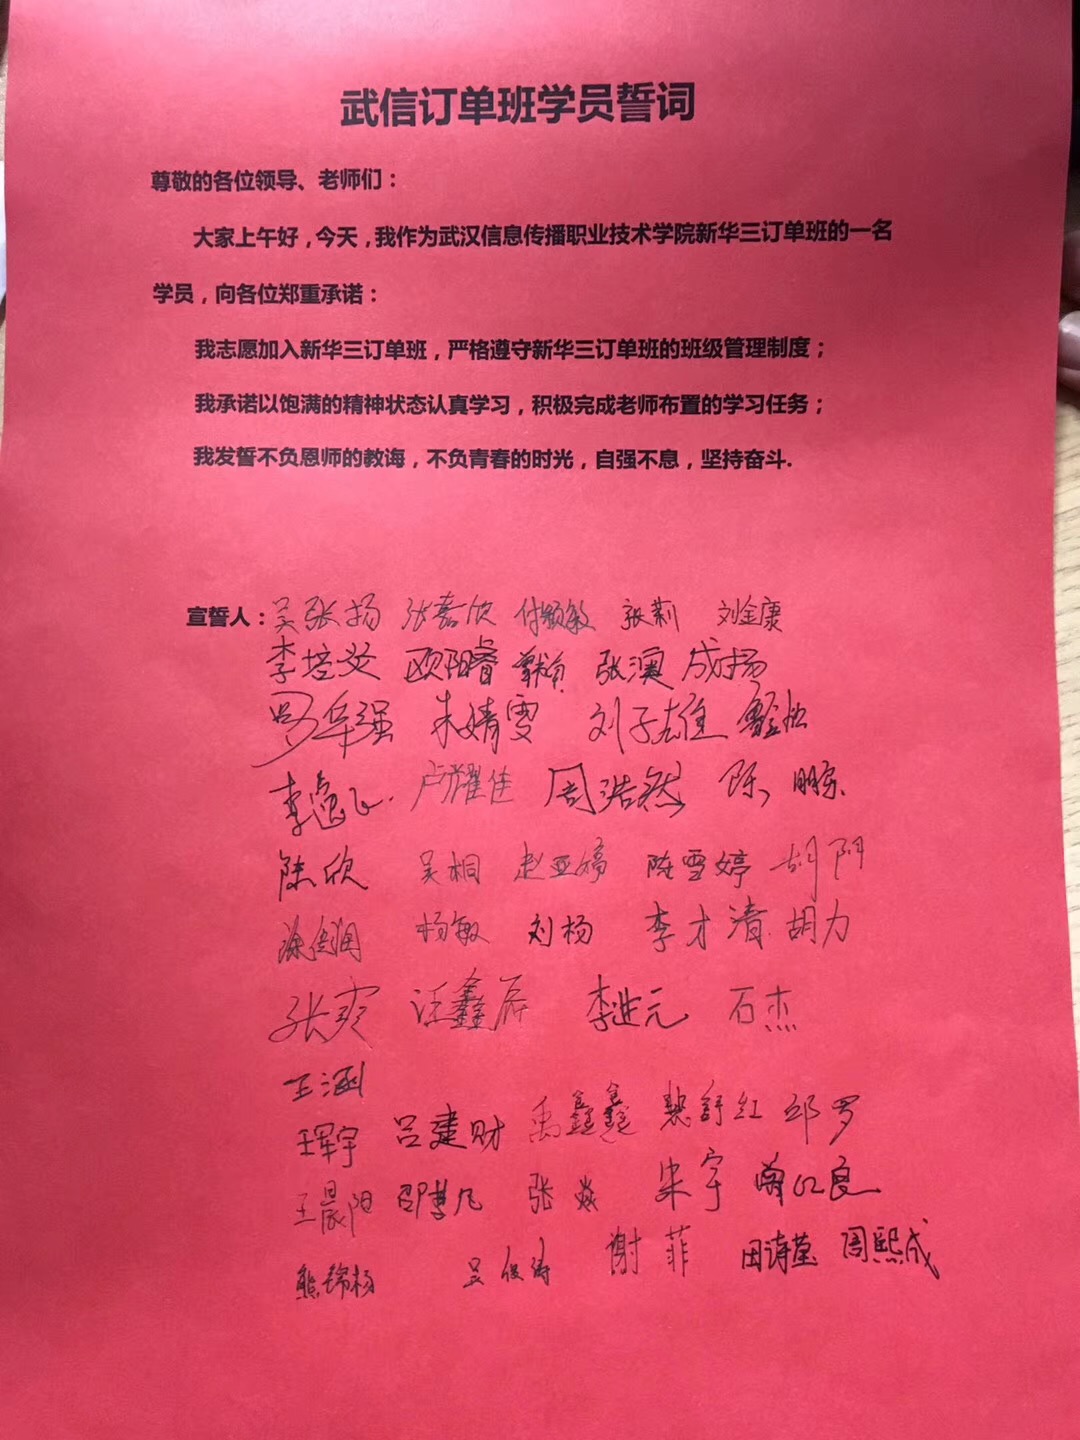 武信订单班学员誓词
尊敬的各位领导、老师们：
大家上午好，今天，我作为武汉信息传播职业技术学院新华三订单班的一名
学员，向各位郑重承诺：
我志愿加入新华三订单班，严格遵守新华三订单班的班级管理制度；
我承诺以饱满的精神状态认真学习，积极完成老师布置的学习任务；
我发誓不负恩师的教诲，不负青春的时光，自强不息，坚持奋斗.
宣誓人：吴张扬 张嘉欣 付颖毅 张莉 刘金康
李培 欧阳睿 张演 成扬
罗华强 朱婧雯 刘子雄
李逸飞 卢耀佳 周浩然 陈
陈欣 吴桐 赵亚婷 陈雪婷 胡阿
杨敏 刘杨 李才清 胡力
张爽 汪鑫辰 李进元 石杰
王涵
王军宇 吕建财 禹鑫鑫 舒红 邱罗
王晨阳 邵梦凡 张焱 朱宇
熊锦杨 吴俊涛 谢菲 田诗莹 周熙成